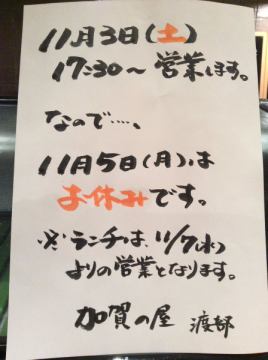 11月3日(土)
17:30～営業します。
なので….、
11月5日(月)は
お休みです。
※ランチは、11/7(水)
よりの営業となります。
加賀の屋 渡部